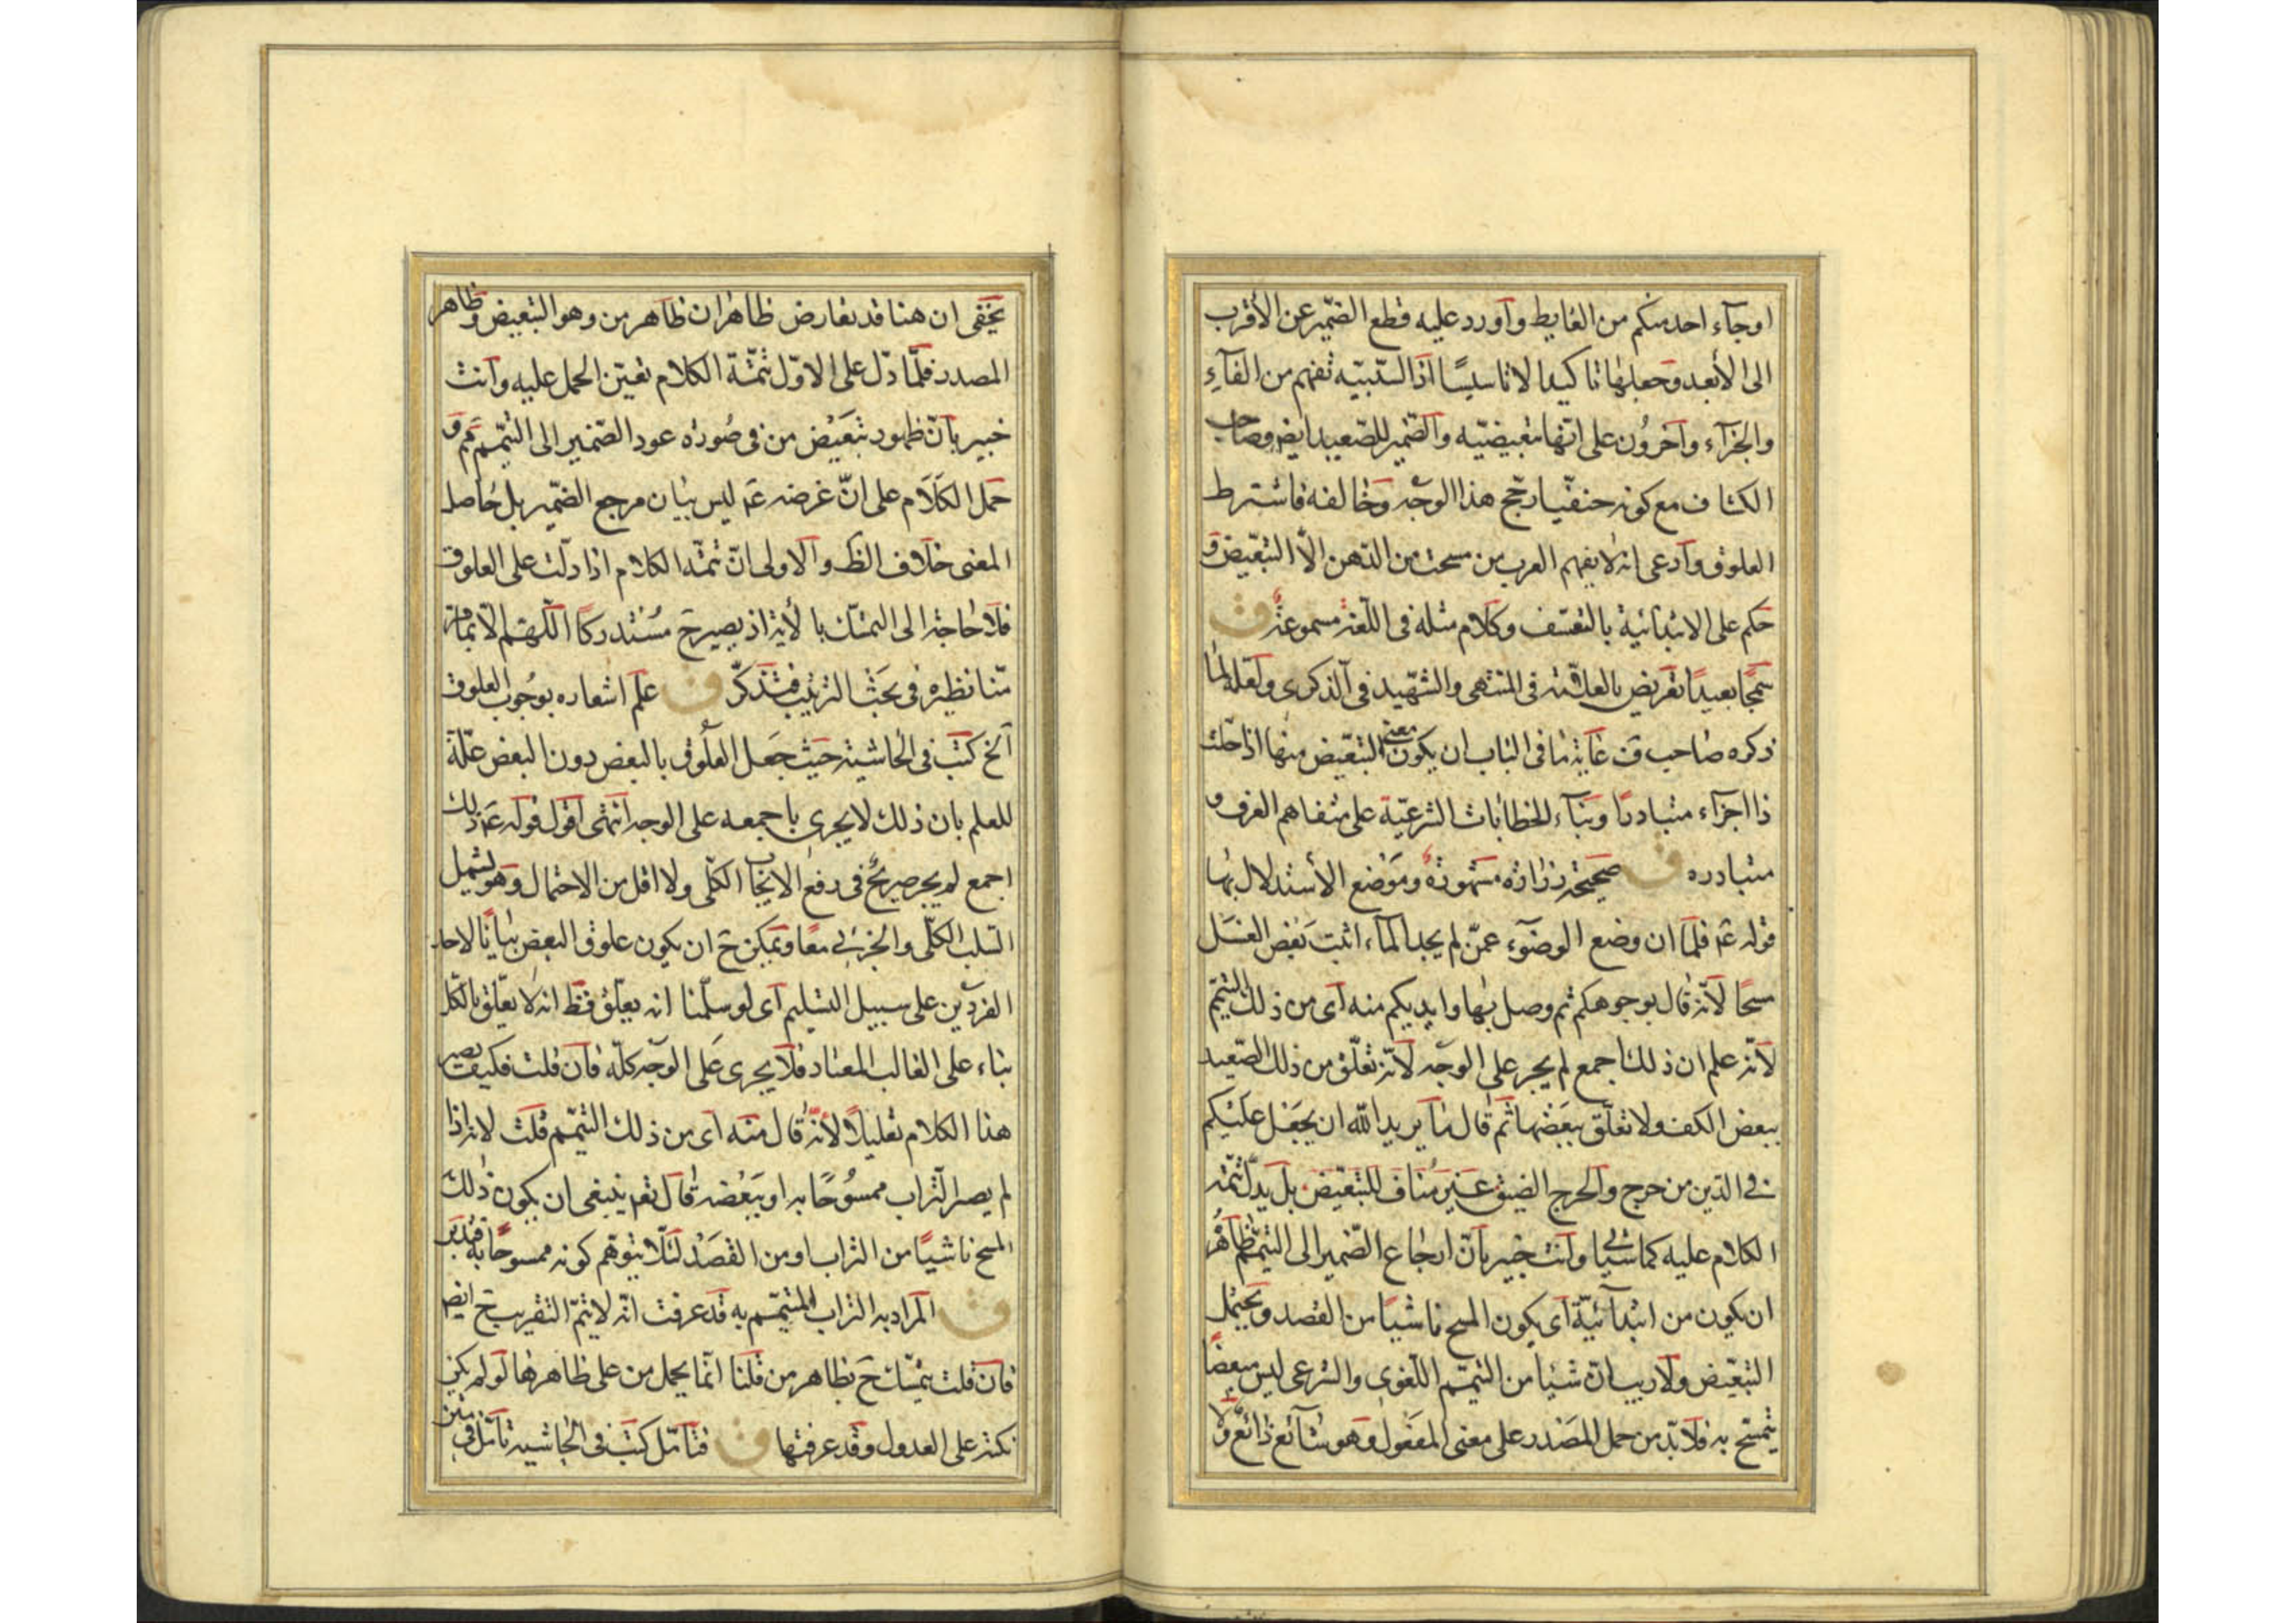 او جآء احد منكم من الغايط وآورد عليه قطع الضّمير عن الأقرب
الى الأبعد وجعلها تاكيدا لا تاسيسًا اذ السّببيّه تفهم من الفآءِ
والجزآء وآخرُون على انّها تبعيضيّه والضّمير للصّعيد ايضا وصاحب
الكشاف مع كونه حنفيّا رجّح هذا الوجه وخالفه فاشترط
العلوق وادعى انه لا يفهم العرب من مسحت من الدّهن الاّ التبعّيض و
حكم على الابتدائية بالتعسّف وكلام مثله فى اللّغة مسموعة ق
سمجًا بعيدًا تعريض بالعلاّمة فى المنتهى والشهّيد فى الذكرى ولعله لما
ذكره صاحب ق غاية ما فى الباب ان يكون معنى التبعّيض منها اذا حلت
ذا اجزآء متبادرًا وبنآء الخطابات الشرعيّة على متفاهم العرف و
متبادره ق صحيحة زرارة مشهورة وموضع الأستدلال بها
قوله عم فلمّا ان وضع الوضوء عمّن لم يجد المآء اثبت بعض الغسل
مسحًا لأنّه قال بوجوهكم ثم وصل بها وايديكم منه اى من ذلك التيمّم
لأنّه علم ان ذلك اجمع لم يجر على الوجه لأنّه تعلّق من ذلك الصّعيد
ببعض الكف ولا تعلّق ببعضها ثم قال ما يريد الله ان يجعل عليكم
فى الدّين من حرج والحرج الضيق غير مناف للتبعّيض بل يدلّ تتمّة
الكلام عليه كما سيأتى وانت خبير بانّ ارجاع الضّمير الى التيمّم ظاهره
ان يكون من ابتدآئيّة اى يكون المسح ناشيًا من القصد ويحتمل
التبعّيض ولا ريب انّ شيئا من التيمّم اللّغوى والشرعى ليس مبعضًا
يتمسّح به فلا بدّ من حمل المصدر على معنى المفعول وهو شآئع ذائع ولا
يخفى ان هنا قد تعارض ظاهران ظاهر من وهو التبعيض وظاهر
المصدر فلمّا دلّ على الاوّل تتمّة الكلام تعيّن الحمل عليه وانت
خبير بانّ ظهور تبعيض من فى صُورة عود الضّمير الى التيمّم مم و
حمل الكلام على انّ غرضه عم ليس بيان مرجع الضّمير بل حاصل
المعنى خلاف الظ والاولى انّ تتمّة الكلام اذا دلّت على العلوق
فلا حاجة الى التمسّك بالأية اذ يصير ح مُستدركا اللّهمّ الاّ بما مرّ
منّا نظيره فى بحث الترتيب فتذكّر ق علم اشعاره بوجُوب العلوق
آلخ كتب فى الحاشية حيث جعل العلُوق بالبعض دون البعض علّة
للعلم بان ذلك لا يجرى باجمعه على الوجه انتهى اقول قوله عم ذلك
اجمع لم يجر صريحٌ فى رفع الايجاب الكلّى ولا اقل من الاحتمال وهو يشمل
السّلب الكلّى والجزئى معًا ويمكن ح ان يكون علوق البعض بيانًا لاحد
الفردين على سبيل التسليم اى لو سلّمنا انه يعلّق فظ انه لا يعلّق بالكلّ
بناء على الغالب المعتاد فلا يجرى على الوجه كلّه فان قلت فكيف يصير
هذا الكلام تعليلاً لأنّه قال منه اى من ذلك التيمّم قلت لانه اذا
لم يصر التّراب ممسُوحًا به او ببعضه قال تعم ينبغى ان يكون ذلك
المسح ناشيًا من التراب او من القصد لئلّا يتوهّم كونه ممسوحًا به فتدبّر
ق المراد به التراب المتيمّم به قد عرفت انّه لا يتمّ التقريب ح ايضا
فان قلت يتمسّك ح بظاهر من قلنا انّما يحمل من على ظاهرها لو لم يكن
نكتة على العدول وقد عرفتها ق فتامّل كتب فى الحاشية تامّل فى